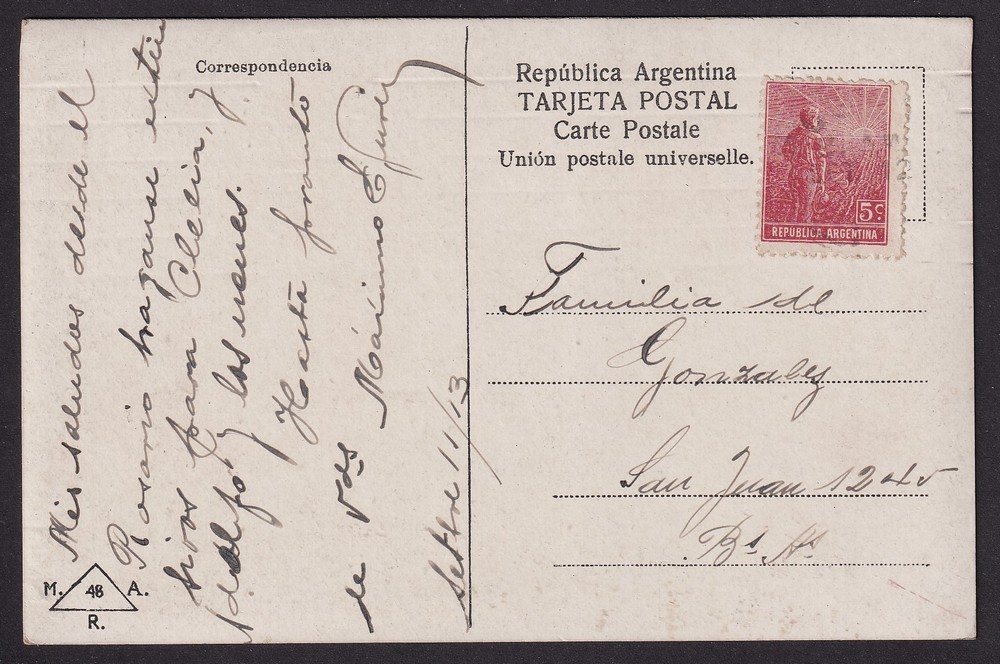 Correspondencia
Mis saludos desde el
Rosario haganse exten
sivos para Clelia, y
Adolfo y los nenes.
Hasta pronto
de Vds Máximo
Setbre 11/13
M. 48 A.
R.
República Argentina
TARJETA POSTAL
Carte Postale
Unión postale universelle.
5c
REPUBLICA ARGENTINA
Familia de
Gonzalez
San Juan 1245
Bs As